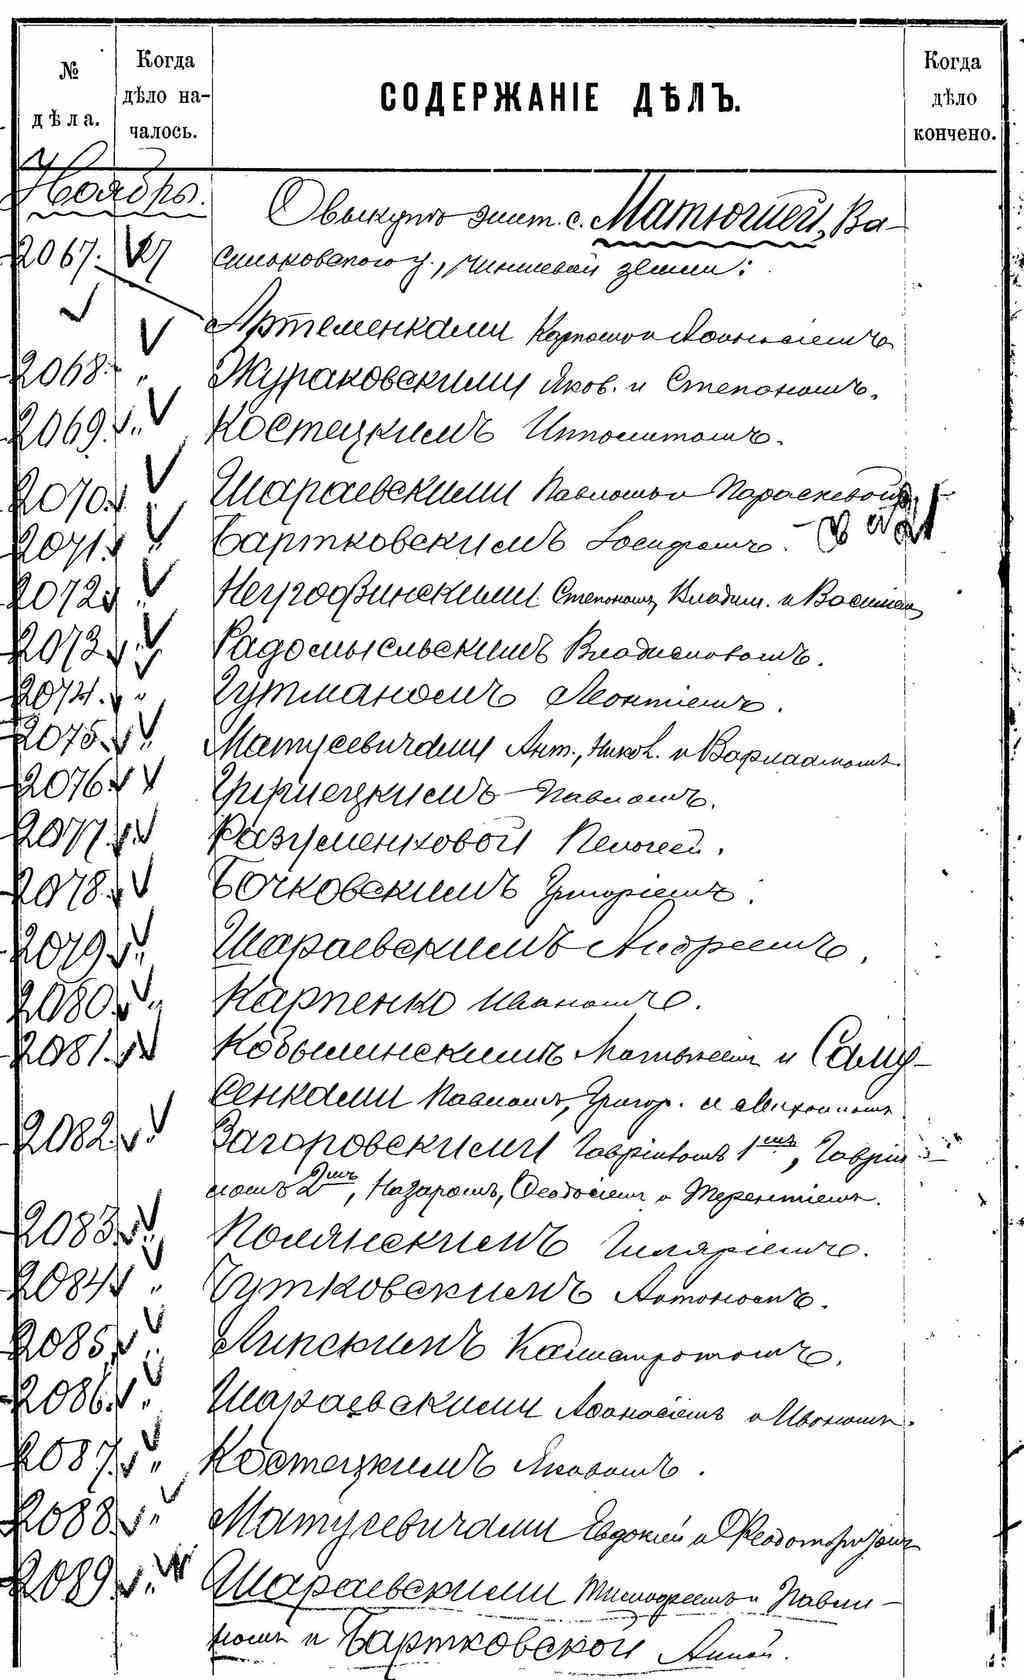 № дѣла.
Когда дѣло на-
чалось.
СОДЕРЖАНІЕ ДѢЛЪ.
Когда дѣло кончено.
Ноябрь.
О выкупѣ жит. с. Матюшей, Ва-
2067. 27 сильковскаго у., чиншевой земли:
Артеменками Карпомъ и Аѳанасіемъ
2068. " Жураковскими Яков. и Степаномъ.
2069. " Костецкимъ Ипполитомъ.
2070. " Шараевскими Павломъ и Параскевой
2071. " Бартковскимъ Іосифомъ.
2072. " Негродзинскими Степаномъ, Владим. и Василіемъ
2073. " Радомысльскимъ Владиславомъ.
2074. " Гутманомъ Леонтіемъ.
2075. " Матусевичами Ант., Никол. и Варлаамомъ.
2076. " Павломъ.
2077. " Разуменковой Пелагеей.
2078. " Бочковскимъ Григоріемъ.
2079. " Шараевскимъ Андреемъ.
2080. " Карпенко Иваномъ.
2081. " Кобылинскимъ Матвѣемъ и Саму-
сенками Павломъ, Григор. и Михаиломъ
2082. " Загоровскими Гавріиломъ 1мъ, Гавріи-
ломъ 2мъ, Назаромъ, Ѳеодосіемъ и Терентіемъ.
2083. " Полянскимъ Гиляріемъ.
2084. " Гутковскимъ Антономъ.
2085. " Липскимъ Калистратомъ.
2086. " Шараевскими Аѳанасіемъ и Иваномъ.
2087. " Костецкимъ Яковомъ.
2088. " Матусевичами Евдокіей и
2089. " Шараевскими Тимофеемъ и Павли-
номъ и Бартковской Анной.